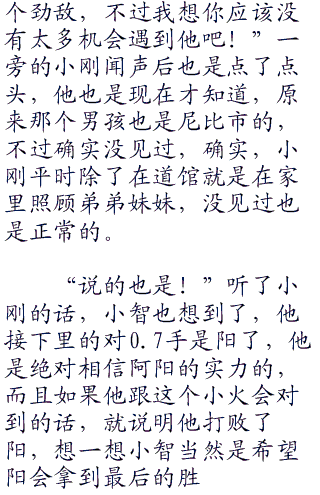 个劲敌，不过我想你应该没
有太多机会遇到他吧！”一
旁的小刚闻声后也是点了点
头，他也是现在才知道，原
来那个男孩也是尼比市的，
不过确实没见过，确实，小
刚平时除了在道馆就是在家
里照顾弟弟妹妹，没见过也
是正常的。
“说的也是！”听了小
刚的话，小智也想到了，他
接下里的对0.7手是阳了，他
是绝对相信阿阳的实力的，
而且如果他跟这个小火会对
到的话，就说明他打败了
阳，想一想小智当然是希望
阳会拿到最后的胜